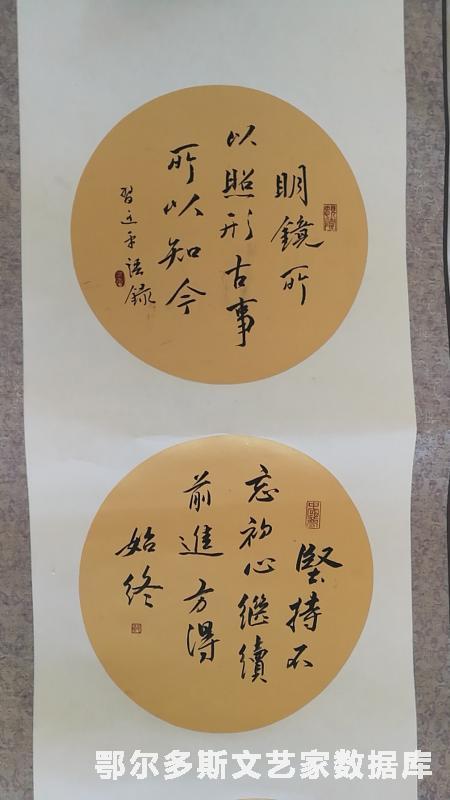 明鏡所
以照形古事
所以知今
習近平語録
堅持不
忘初心繼續
前進方得
始終
鄂尔多斯文艺家数据库